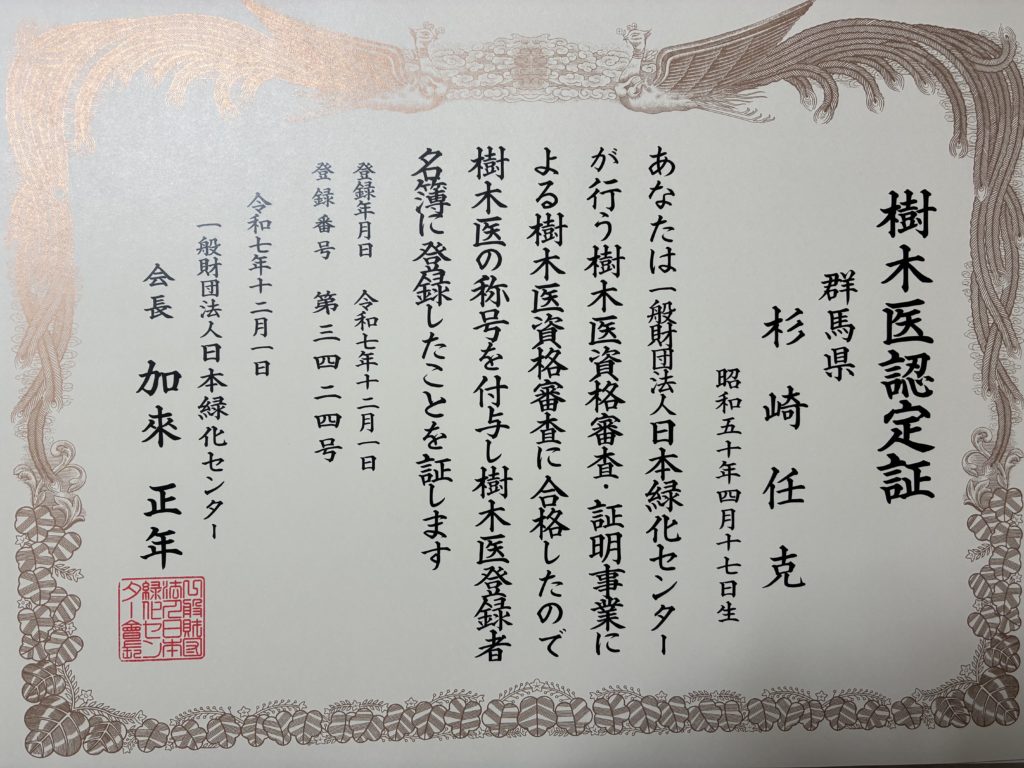 樹木医認定証
群馬県
杉崎任克
昭和五十年四月十七日生
あなたは一般財団法人日本緑化センター
が行う樹木医資格審査・証明事業に
よる樹木医資格審査に合格したので
樹木医の称号を付与し樹木医登録者
名簿に登録したことを証します
登録年月日 令和七年十二月一日
登録番号 第三四二四号
令和七年十二月一日
一般財団法人日本緑化センター
会長 加來正年
一般財団
法人日本
緑化セン
ター會長